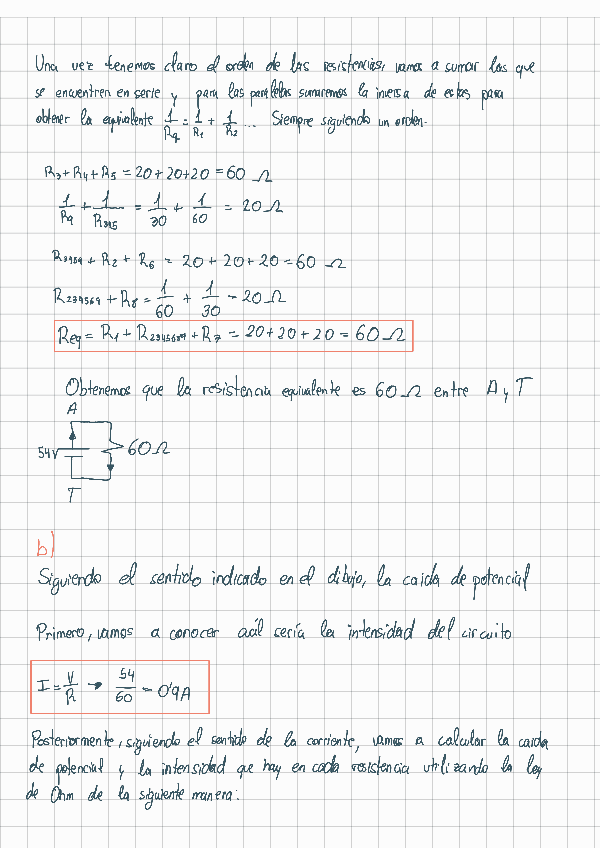 Una vez tenemos claro el orden de las resistencias, vamos a sumar las que
se encuentren en serie y para las paralelas sumaremos la inversa de estas para
obtener la equivalente 1/Rq = 1/R1 + 1/R2 ... Siempre siguiendo un orden.
R3 + R4 + R5 = 20 + 20 + 20 = 60 Ω
1/R9 + 1/R345 = 1/30 + 1/60 = 20 Ω
R3459 + R2 + R6 = 20 + 20 + 20 = 60 Ω
R234569 + R8 = 1/60 + 1/30 = 20 Ω
Req = R1 + R2345689 + R7 = 20 + 20 + 20 = 60 Ω
Obtenemos que la resistencia equivalente es 60 Ω entre A y T
A
54V 60 Ω
T
b)
Siguiendo el sentido indicado en el dibujo, la caida de potencial
Primero, vamos a conocer cuál sería la intensidad del circuito
I = V/R → 54/60 = 0'9A
Posteriormente, siguiendo el sentido de la corriente, vamos a calcular la caida
de potencial y la intensidad que hay en cada resistencia utilizando la ley
de Ohm de la siguiente manera: